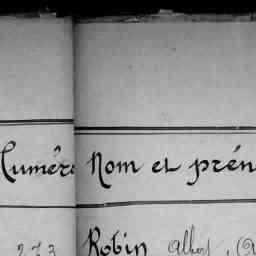 Numéro Nom et prén
273 Robin Albert, (A